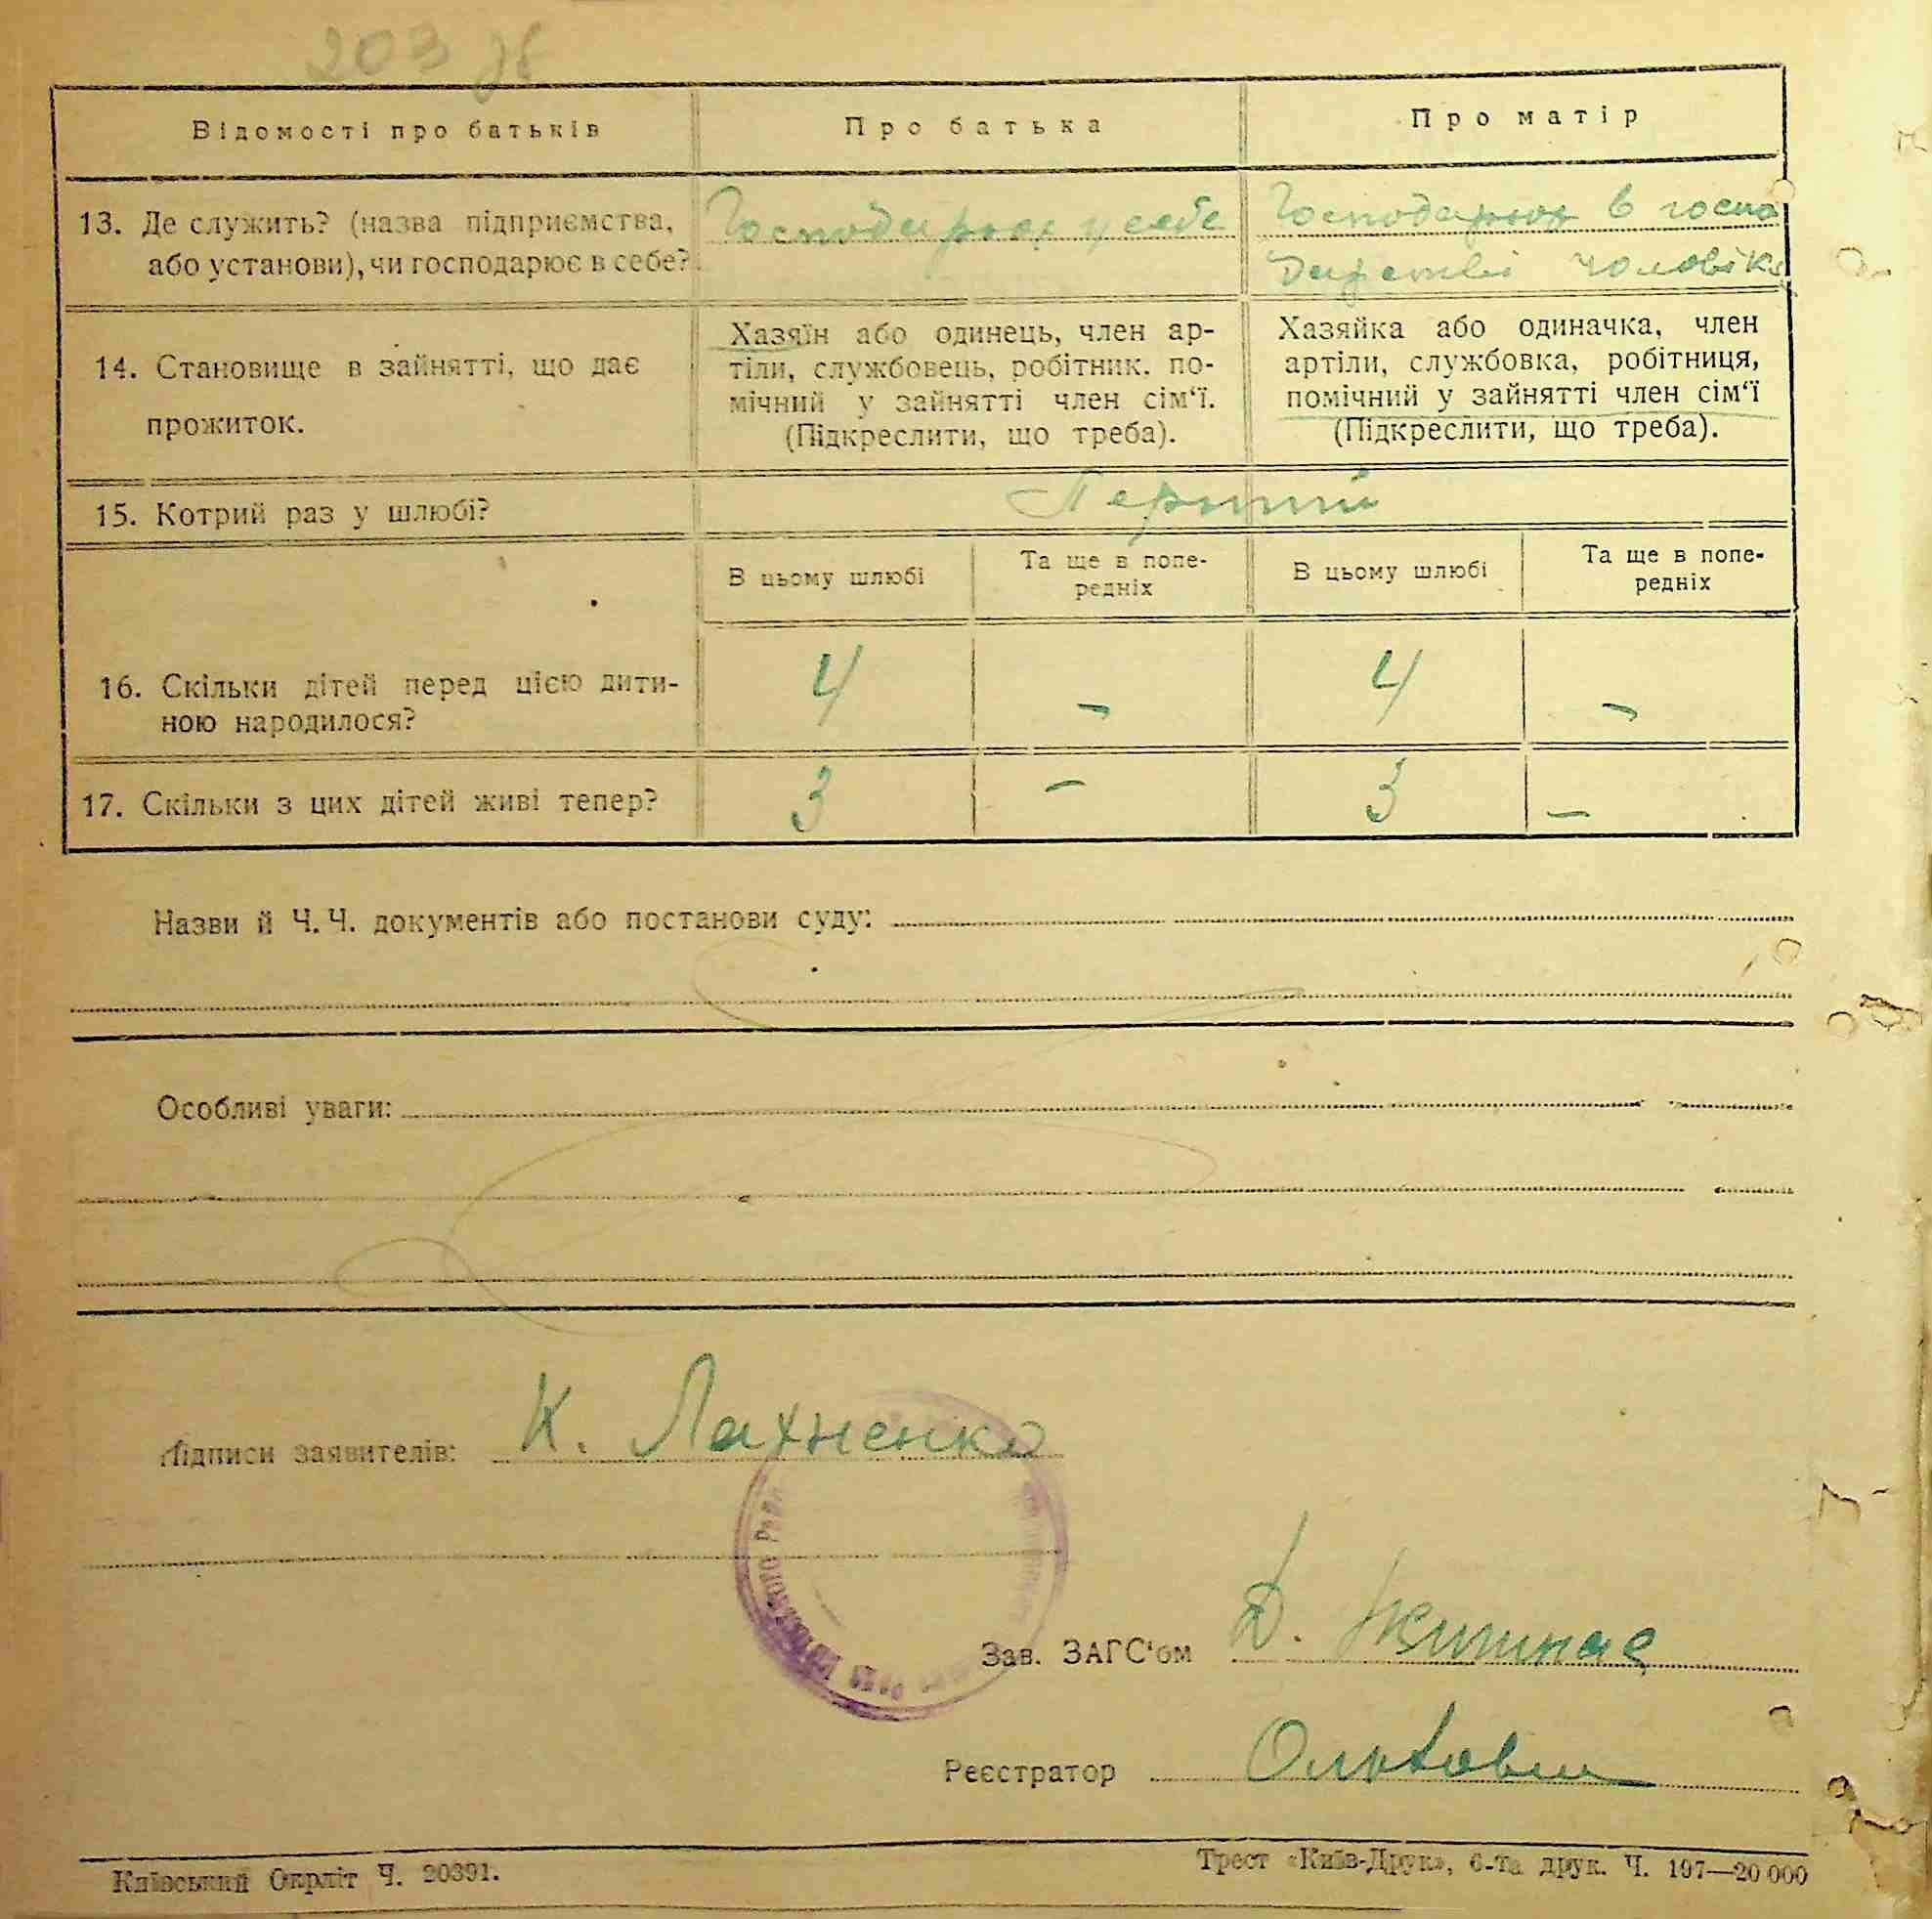 203 зв
Відомості про батьків
Про батька
Про матір
13. Де служить? (назва підприємства,
або установи), чи господарює в себе?
Господарює у себе
Господарює в госпо
дарстві чоловіка
14. Становище в зайнятті, що дає
прожиток.
Хазяїн або одинець, член ар-
тіли, службовець, робітник, по-
мічний у зайнятті член сім‘ї.
(Підкреслити, що треба).
Хазяйка або одиначка, член
артіли, службовка, робітниця,
помічний у зайнятті член сім‘ї
(Підкреслити, що треба).
15. Котрий раз у шлюбі?
Перший
В цьому шлюбі
Та ще в попе-
редніх
В цьому шлюбі
Та ще в попе-
редніх
16. Скільки дітей перед цією дити-
ною народилося?
4 – 4 –
17. Скільки з цих дітей живі тепер?
3 – 3 –
Назви й Ч. Ч. документів або постанови суду:
Особливі уваги:
Підписи заявителів: К. Лахненко
Зав. ЗАГС‘ом Д.
Реєстратор
Київський Окрліт Ч. 20391.
Трест «Київ-Друк», 6-та друк. Ч. 197—20 000